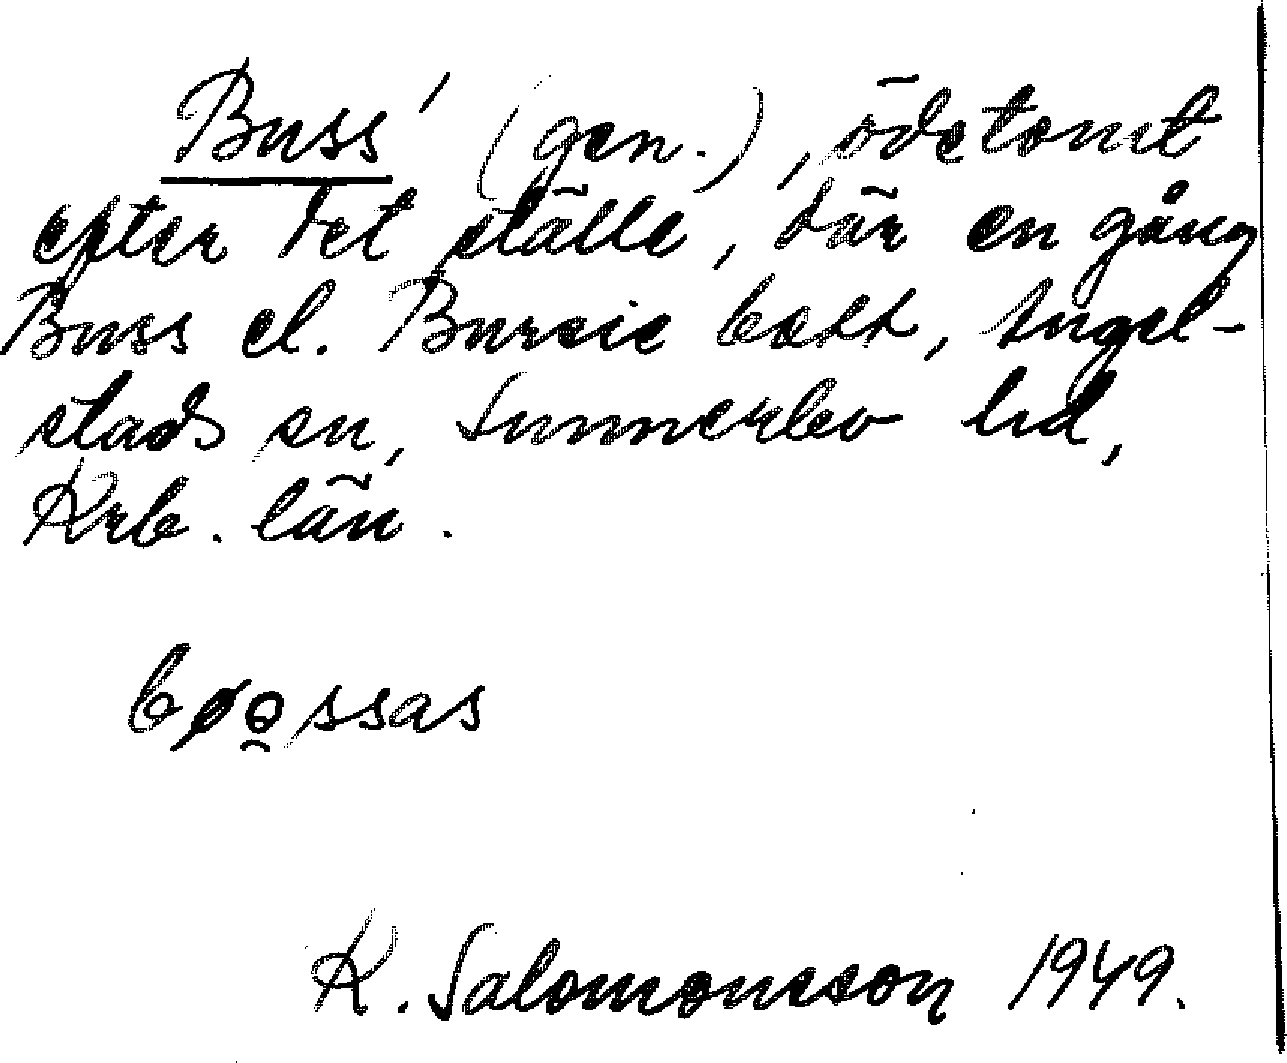 Buss' (gen.), ödetomt
efter det ställe, där en gång
Buss el. Bursie bott, Angel-
stads sn, Sunnerbo hd,
Krb. län.
bøo̯ssas
K. Salomonsson 1949.